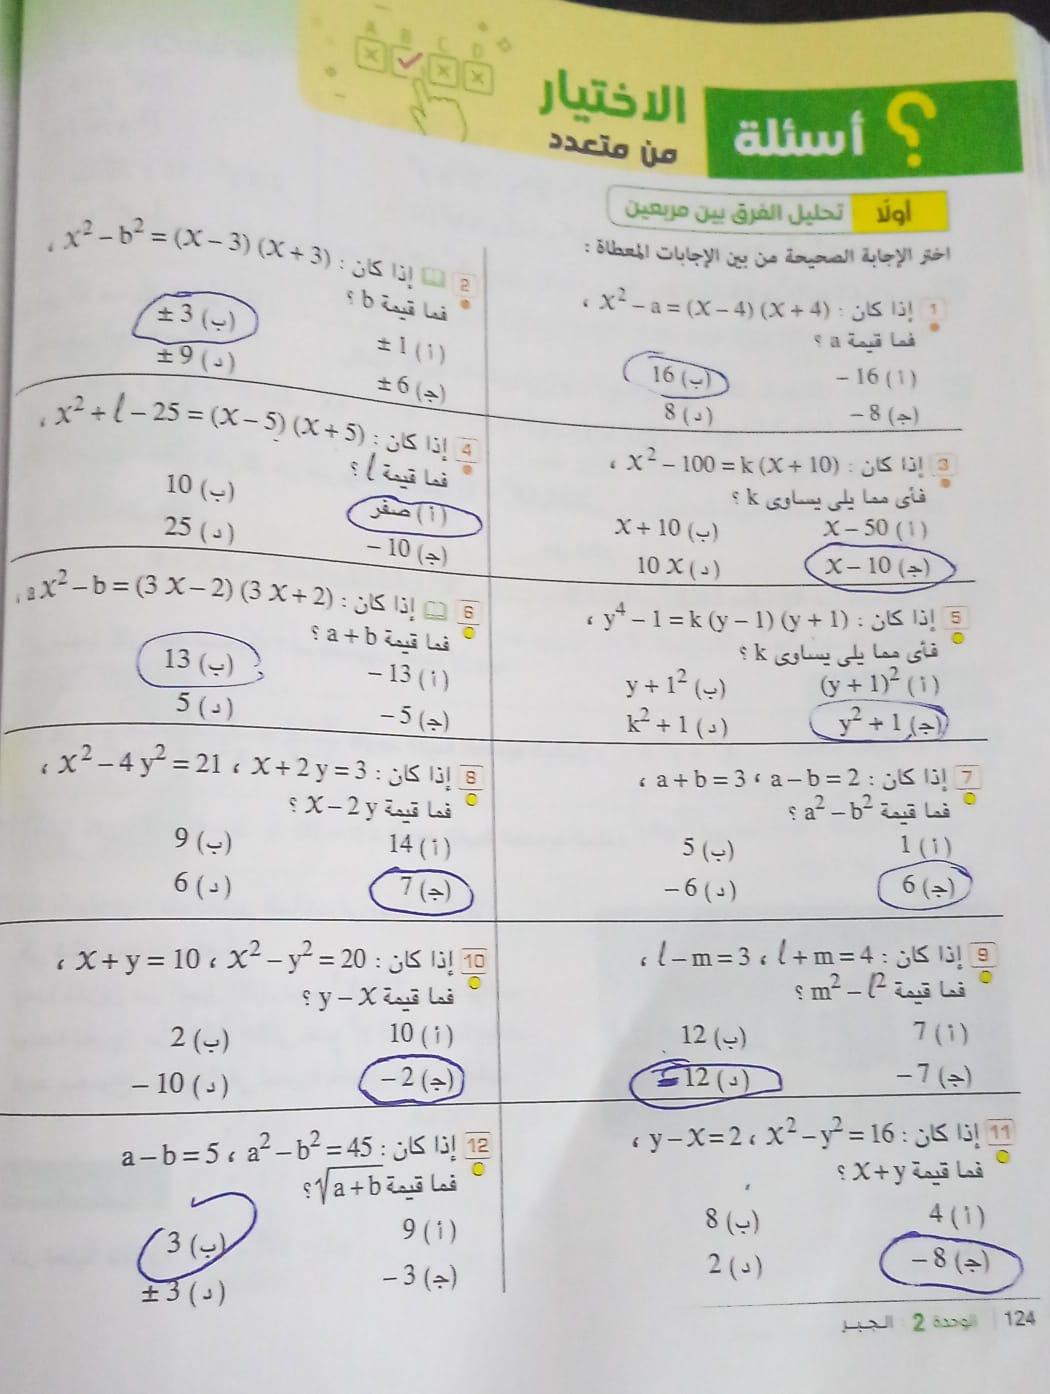 A B C D
أسئلة الاختيار
من متعدد
أولًا تحليل الفرق بين مربعين
اختر الإجابة الصحيحة من بين الإجابات المعطاة :
1 إذا كان : x² – a = (x – 4) (x + 4) ،
فما قيمة a ؟
(أ) – 16 (ب) 16
(ج) – 8 (د) 8
2 إذا كان : x² – b² = (x – 3) (x + 3) ،
فما قيمة b ؟
(أ) ± 1 (ب) ± 3
(ج) ± 6 (د) ± 9
3 إذا كان : x² – 100 = k (x + 10) ،
فأى مما يلى يساوى k ؟
(أ) x – 50 (ب) x + 10
(ج) x – 10 (د) 10 x
4 إذا كان : x² + l – 25 = (x – 5) (x + 5) ،
فما قيمة l ؟
(أ) صفر (ب) 10
(ج) – 10 (د) 25
5 إذا كان : y⁴ – 1 = k (y – 1) (y + 1) ،
فأى مما يلى يساوى k ؟
(أ) (y + 1)² (ب) y + 1²
(ج) y² + 1 (د) k² + 1
6 إذا كان : a x² – b = (3 x – 2) (3 x + 2) ،
فما قيمة a + b ؟
(أ) – 13 (ب) 13
(ج) – 5 (د) 5
7 إذا كان : a – b = 2 ، a + b = 3 ،
فما قيمة a² – b² ؟
(أ) 1 (ب) 5
(ج) 6 (د) – 6
8 إذا كان : x + 2 y = 3 ، x² – 4 y² = 21 ،
فما قيمة x – 2 y ؟
(أ) 14 (ب) 9
(ج) 7 (د) 6
9 إذا كان : l + m = 4 ، l – m = 3 ،
فما قيمة m² – l² ؟
(أ) 7 (ب) 12
(ج) – 7 (د) – 12
10 إذا كان : x² – y² = 20 ، x + y = 10 ،
فما قيمة y – x ؟
(أ) 10 (ب) 2
(ج) – 2 (د) – 10
11 إذا كان : x² – y² = 16 ، y – x = 2 ،
فما قيمة x + y ؟
(أ) 4 (ب) 8
(ج) – 8 (د) 2
12 إذا كان : a² – b² = 45 ، a – b = 5
فما قيمة √a + b ؟
(أ) 9 (ب) 3
(ج) – 3 (د) ± 3
124 الوحدة 2 الجبر